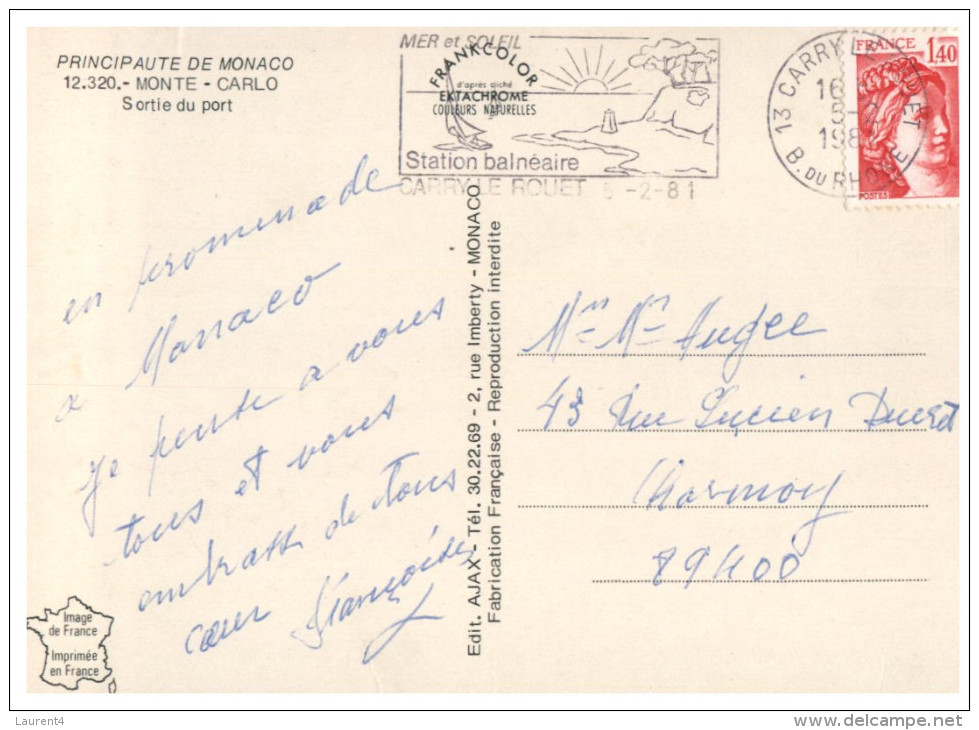 PRINCIPAUTE DE MONACO
12.320.- MONTE - CARLO
Sortie du port
MER et SOLEIL
FRANKCOLOR
d'après cliché
EKTACHROME
COULEURS NATURELLES
Station balnéaire
CARRY LE ROUET 5 -2-81
13 CARRY LE ROUET
16
5-2
198
B. DU RHONE
FRANCE 1,40
POSTES
en promenade
a Monaco
je pense a vous
tous et vous
embrasse de tous
cœur Françoise
Edit. AJAX - Tél. 30.22.69 - 2, rue Imberty - MONACO
Fabrication Française - Reproduction interdite
Mme Mr Augee
43 Rue Lucien Ducrot
Charmoy
89400
Image
de France
Imprimée
en France
Laurent4
www.delcampe.net